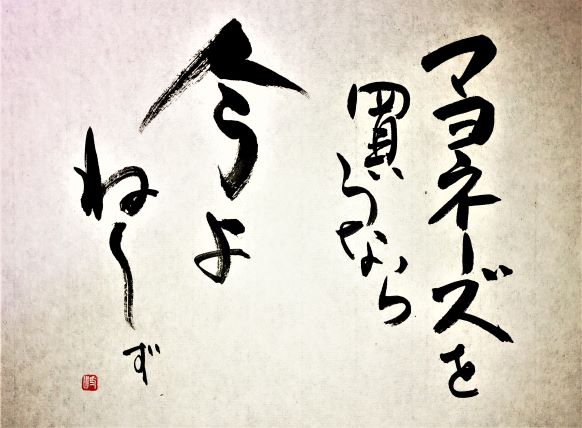 マヨネーズを
買うなら
今よ
ねーず